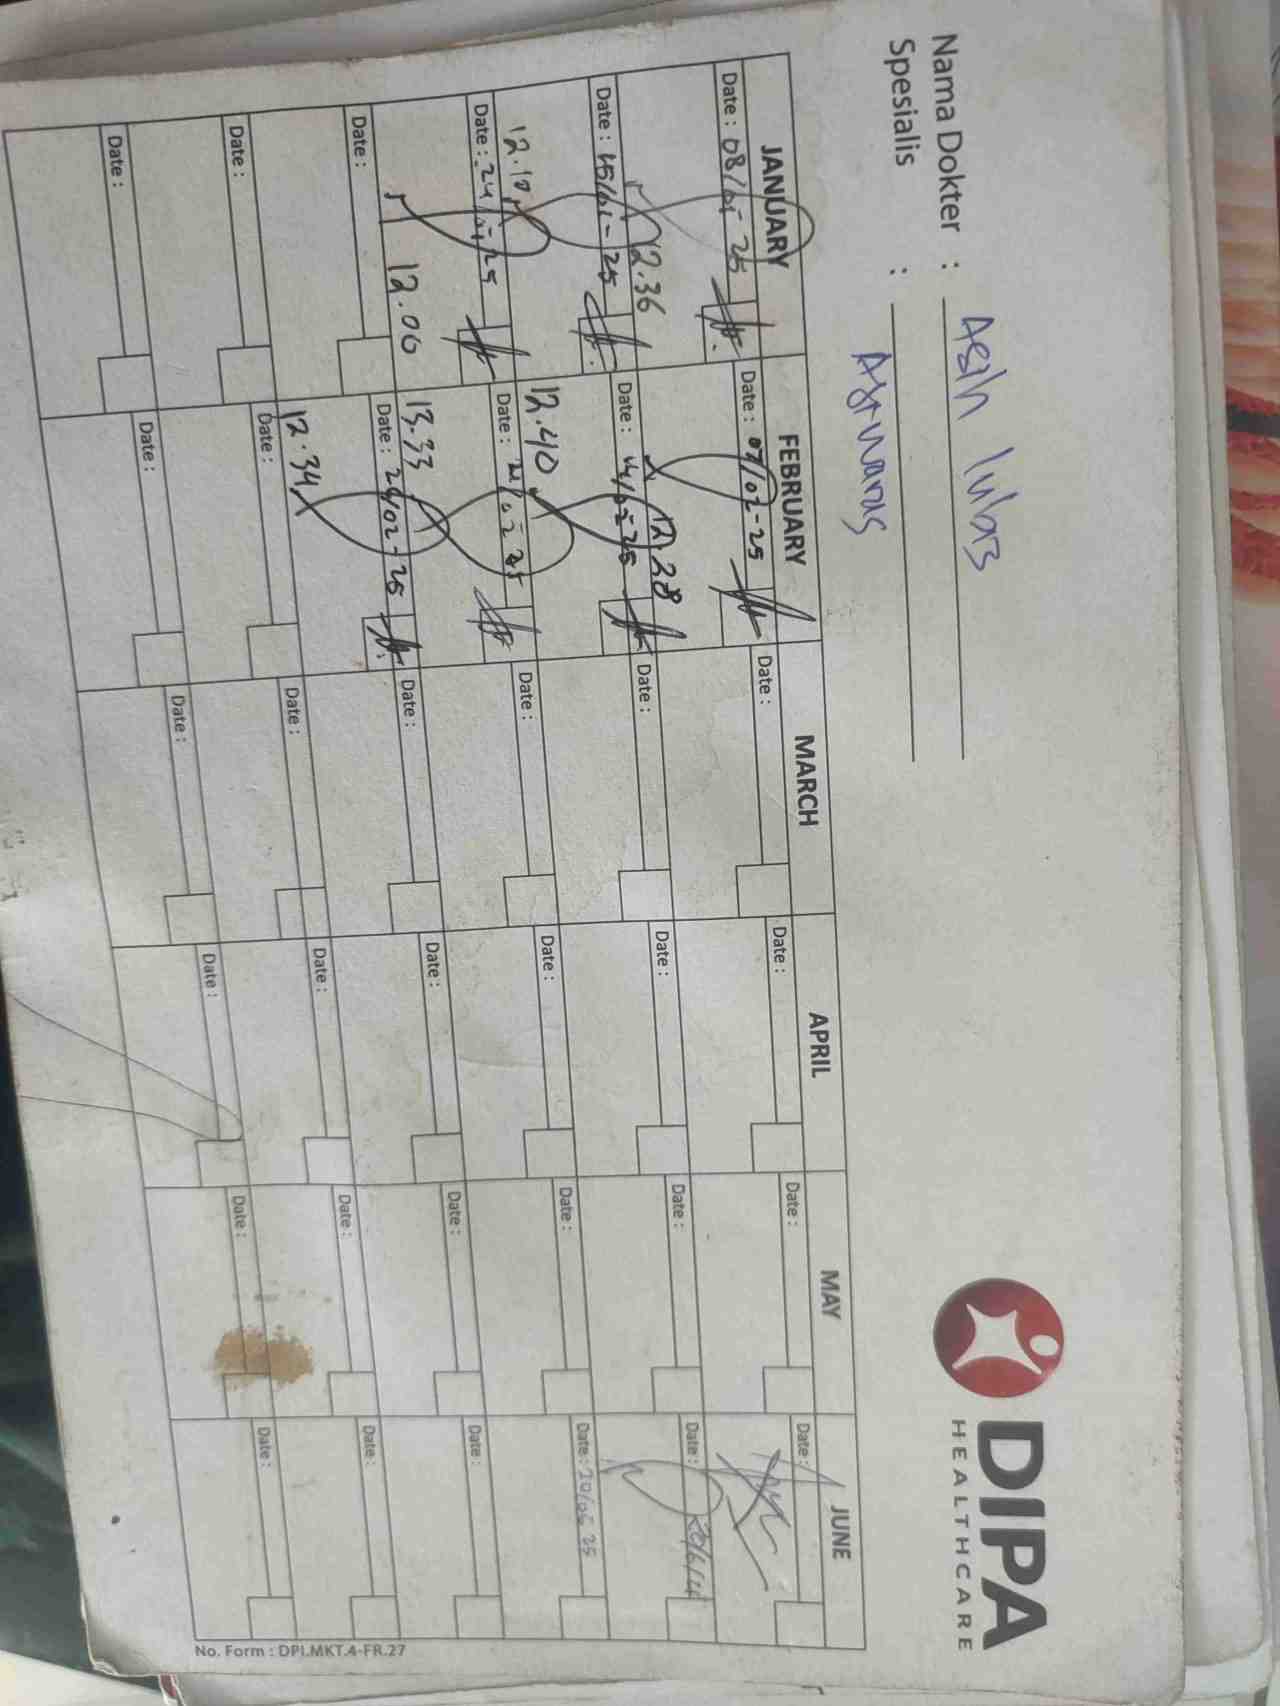 DIPA
HEALTHCARE
Nama Dokter :
Spesialis :
JANUARY FEBRUARY MARCH APRIL MAY JUNE
Date : 08/01-25 Date : 07/02-25 Date : Date : Date : Date :
12.36 12.28
Date : 15/01-25 Date : 14/02-25 Date : Date : Date : Date :
12.10 12.40
Date : 24/01-25 Date : 21/02-25 Date : Date : Date : Date : 20/06 25
12.06 13.33
Date : Date : 24/02-25 Date : Date : Date : Date :
12.34
Date : Date : Date : Date : Date : Date :
Date : Date : Date : Date : Date : Date :
No. Form : DPI.MKT.4-FR.27